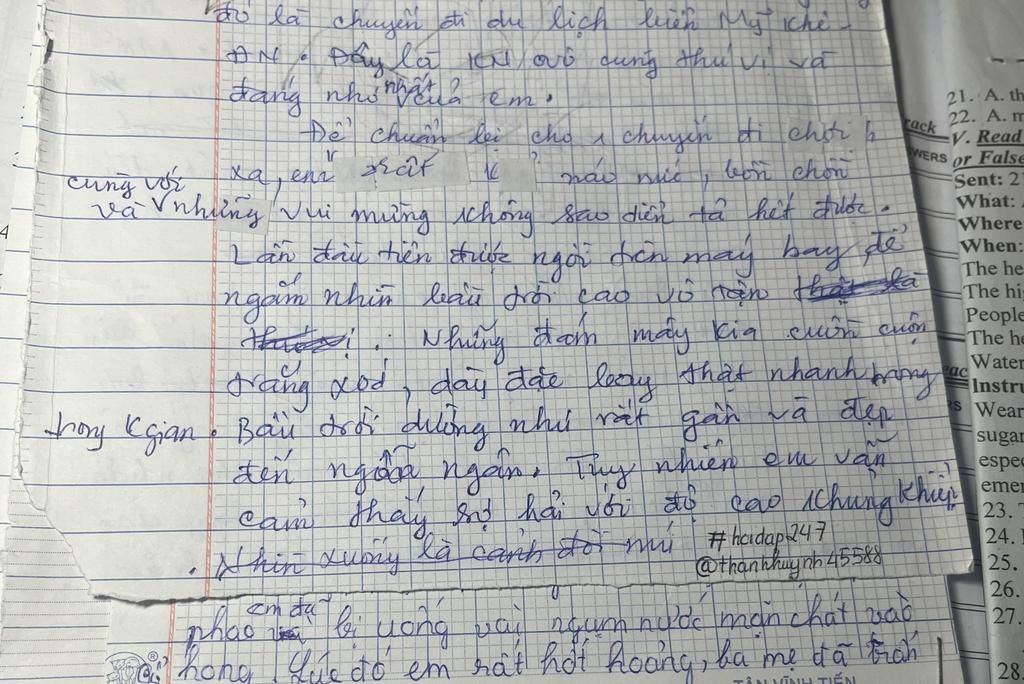 đó là chuyến đi du lịch biển Mỹ Khê -
ĐN. Đây là KN vô cùng thú vị và
đáng nhớ nhất của em.
Để chuẩn bị cho 1 chuyến đi chơi
xa, em rất náo nức, bồn chồn
cùng với
và những vui mừng không sao diễn tả hết được.
Lần đầu tiên được ngồi trên máy bay để
ngắm nhìn bầu trời cao vô tận
. Những đám mây kia cuồn cuộn
trắng xoá, dày đặc bay thật nhanh trong
trong k gian. Bầu trời dường như rất gần và đẹp
đến ngỡ ngàn. Tuy nhiên em vẫn
cảm thấy sợ hãi với độ cao khủng khiếp
. Nhìn xuống là cảnh đồi núi
#hoidap247
@thanhhuynh45588
phao em đã bị uống vài ngụm nước mặn chát vào
họng. Lúc đó em rất hốt hoảng, ba mẹ đã trấn
TÂN VĨNH TIẾN
21. A. th
22. A. m
V. Read
or False
Sent: 2
What:
Where
When:
The he
The hi
People
The he
Water
Instru
Wear
sugar
espec
emer
23. T
24.
25.
26.
27.
28.